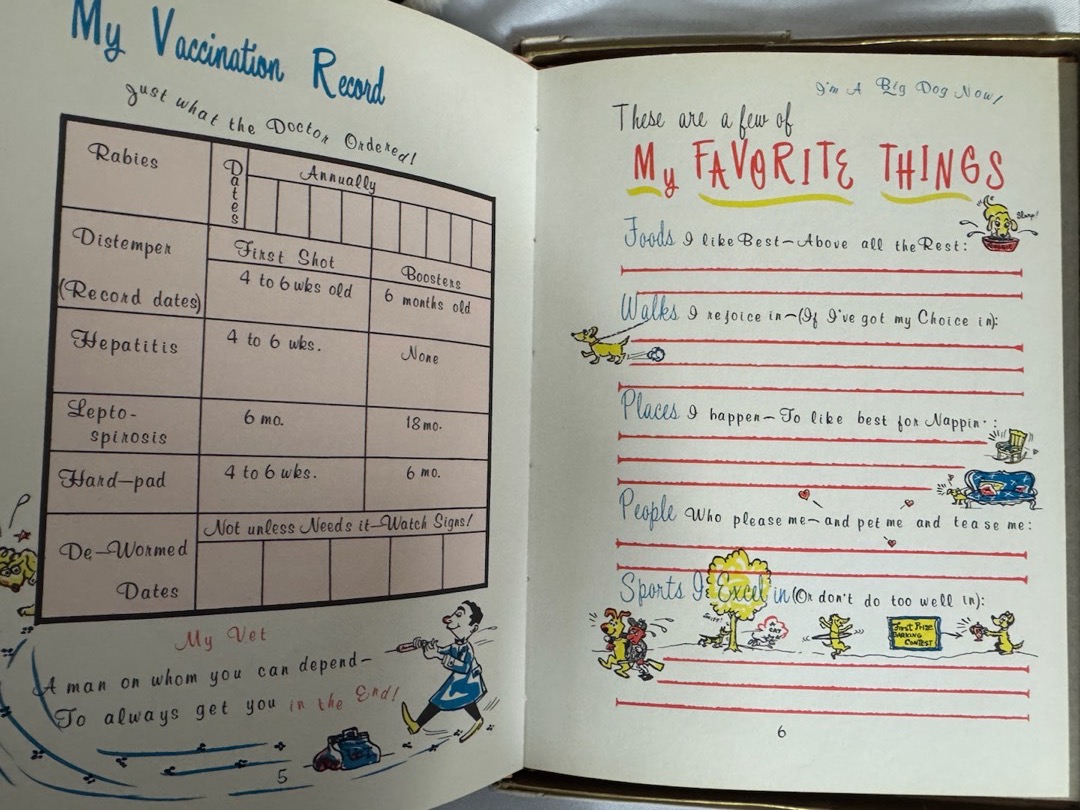 My Vaccination Record
Just what the Doctor Ordered!
Rabies
Dates
Annually
Distemper
(Record dates)
First Shot
Boosters
4 to 6 wks old
6 months old
Hepatitis
4 to 6 wks.
None
Lepto-
spirosis
6 mo.
18 mo.
Hard-pad
4 to 6 wks.
6 mo.
Not unless Needs it-Watch Signs!
De-Wormed
Dates
My Vet
A man on whom you can depend-
To always get you in the End!
5
I'm A Big Dog Now!
These are a few of
My FAVORITE THINGS
Slurp!
Foods I like Best-Above all the Rest:
Walks I rejoice in-(If I've got my Choice in):
Places I happen-To like best for Nappin':
People Who please me-and pet me and tease me:
Sports I Excel in (Or don't do too well in):
A CAT
First Prize
BARKING
CONTEST
6